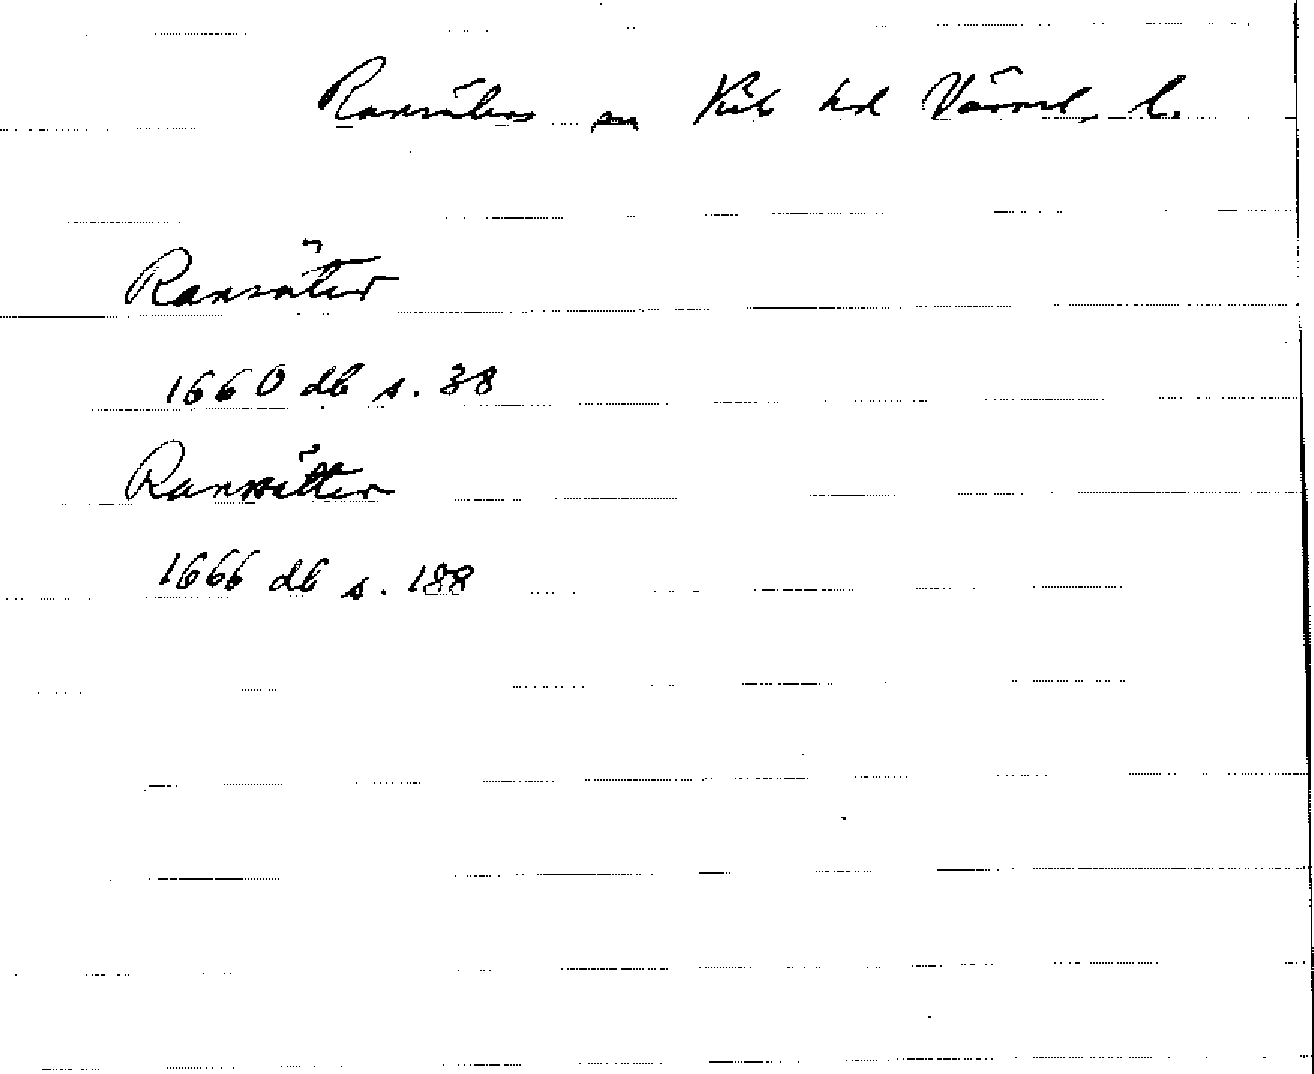 Ransäters sn Kils hd Värml. l.
Ransäter
1660 db s. 38
Ranssätter
1666 db s. 188